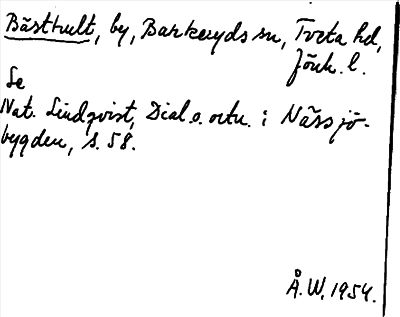 Bästhult, by, Barkeryds sn, Tveta hd,
Jönk. l.
Se
Nat. Lindqvist, Dial. o. ortn. i Nässjö-
bygden, s. 58.
Å. W. 1954.